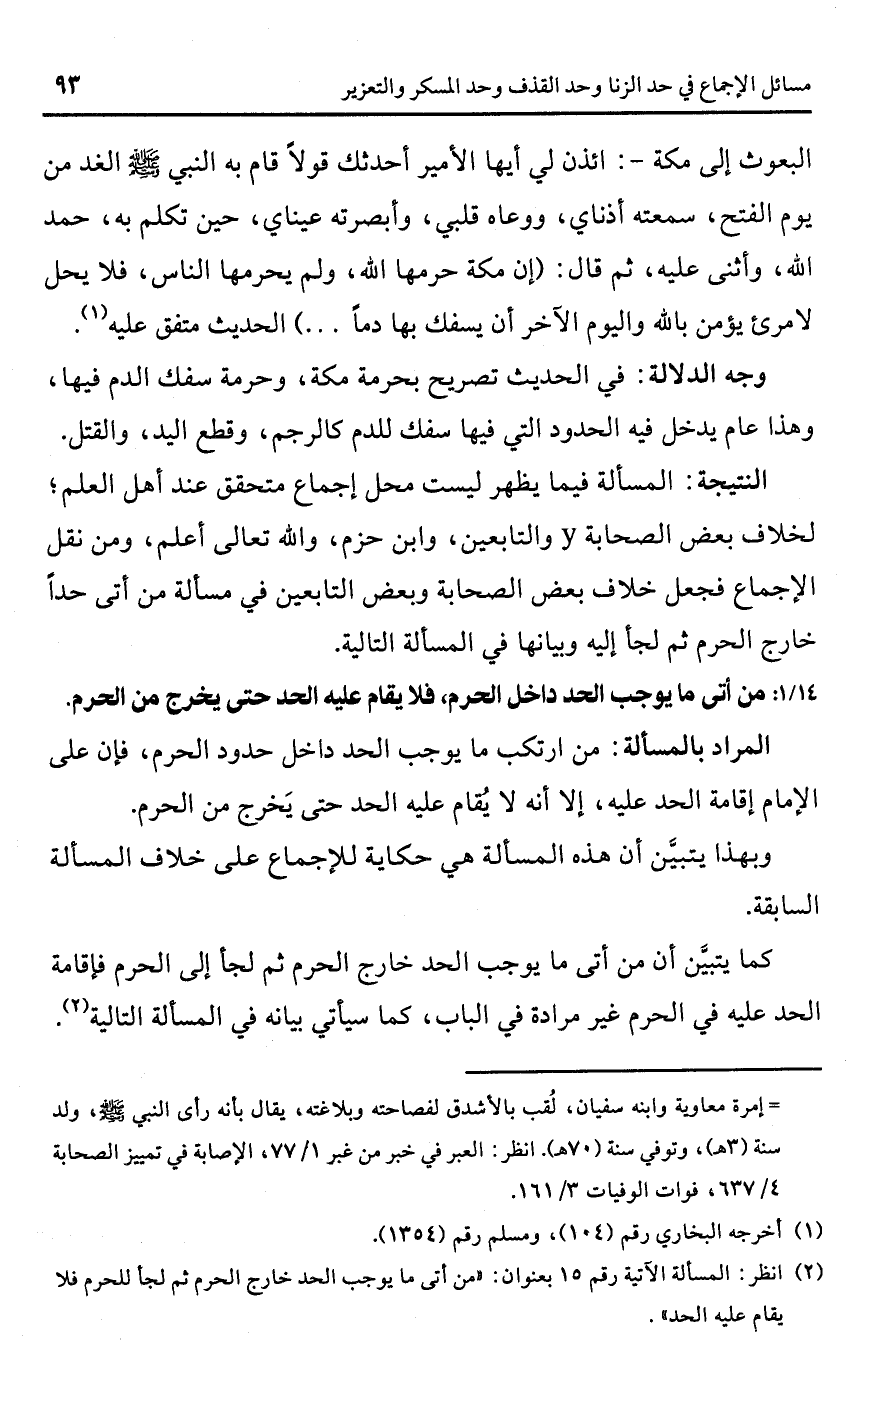 مسائل الإجماع في حد الزنا وحد القذف وحد المسكر والتعزير ٩٣
البعوث إلى مكة -: ائذن لي أيها الأمير أحدثك قولاً قام به النبي ﷺ الغد من
يوم الفتح، سمعته أذناي، ووعاه قلبي، وأبصرته عيناي، حين تكلم به، حمد
الله، وأثنى عليه، ثم قال: (إن مكة حرمها الله، ولم يحرمها الناس، فلا يحل
لامرئ يؤمن بالله واليوم الآخر أن يسفك بها دماً ...) الحديث متفق عليه(١).
وجه الدلالة: في الحديث تصريح بحرمة مكة، وحرمة سفك الدم فيها،
وهذا عام يدخل فيه الحدود التي فيها سفك للدم كالرجم، وقطع اليد، والقتل.
النتيجة: المسألة فيما يظهر ليست محل إجماع متحقق عند أهل العلم؛
لخلاف بعض الصحابة y والتابعين، وابن حزم، والله تعالى أعلم، ومن نقل
الإجماع فجعل خلاف بعض الصحابة وبعض التابعين في مسألة من أتى حداً
خارج الحرم ثم لجأ إليه وبيانها في المسألة التالية.
١/١٤: من أتى ما يوجب الحد داخل الحرم، فلا يقام عليه الحد حتى يخرج من الحرم.
المراد بالمسألة: من ارتكب ما يوجب الحد داخل حدود الحرم، فإن على
الإمام إقامة الحد عليه، إلا أنه لا يُقام عليه الحد حتى يَخرج من الحرم.
وبهذا يتبيَّن أن هذه المسألة هي حكاية للإجماع على خلاف المسألة
السابقة.
كما يتبيَّن أن من أتى ما يوجب الحد خارج الحرم ثم لجأ إلى الحرم فإقامة
الحد عليه في الحرم غير مرادة في الباب، كما سيأتي بيانه في المسألة التالية(٢).
= إمرة معاوية وابنه سفيان، لُقب بالأشدق لفصاحته وبلاغته، يقال بأنه رأى النبي ﷺ، ولد
سنة (٣هـ)، وتوفي سنة (٧٠هـ). انظر: العبر في خبر من غبر ١/ ٧٧، الإصابة في تمييز الصحابة
٤/ ٦٣٧، فوات الوفيات ٣/ ١٦١.
(١) أخرجه البخاري رقم (١٠٤)، ومسلم رقم (١٣٥٤).
(٢) انظر: المسألة الآتية رقم ١٥ بعنوان: «من أتى ما يوجب الحد خارج الحرم ثم لجأ للحرم فلا
يقام عليه الحد».